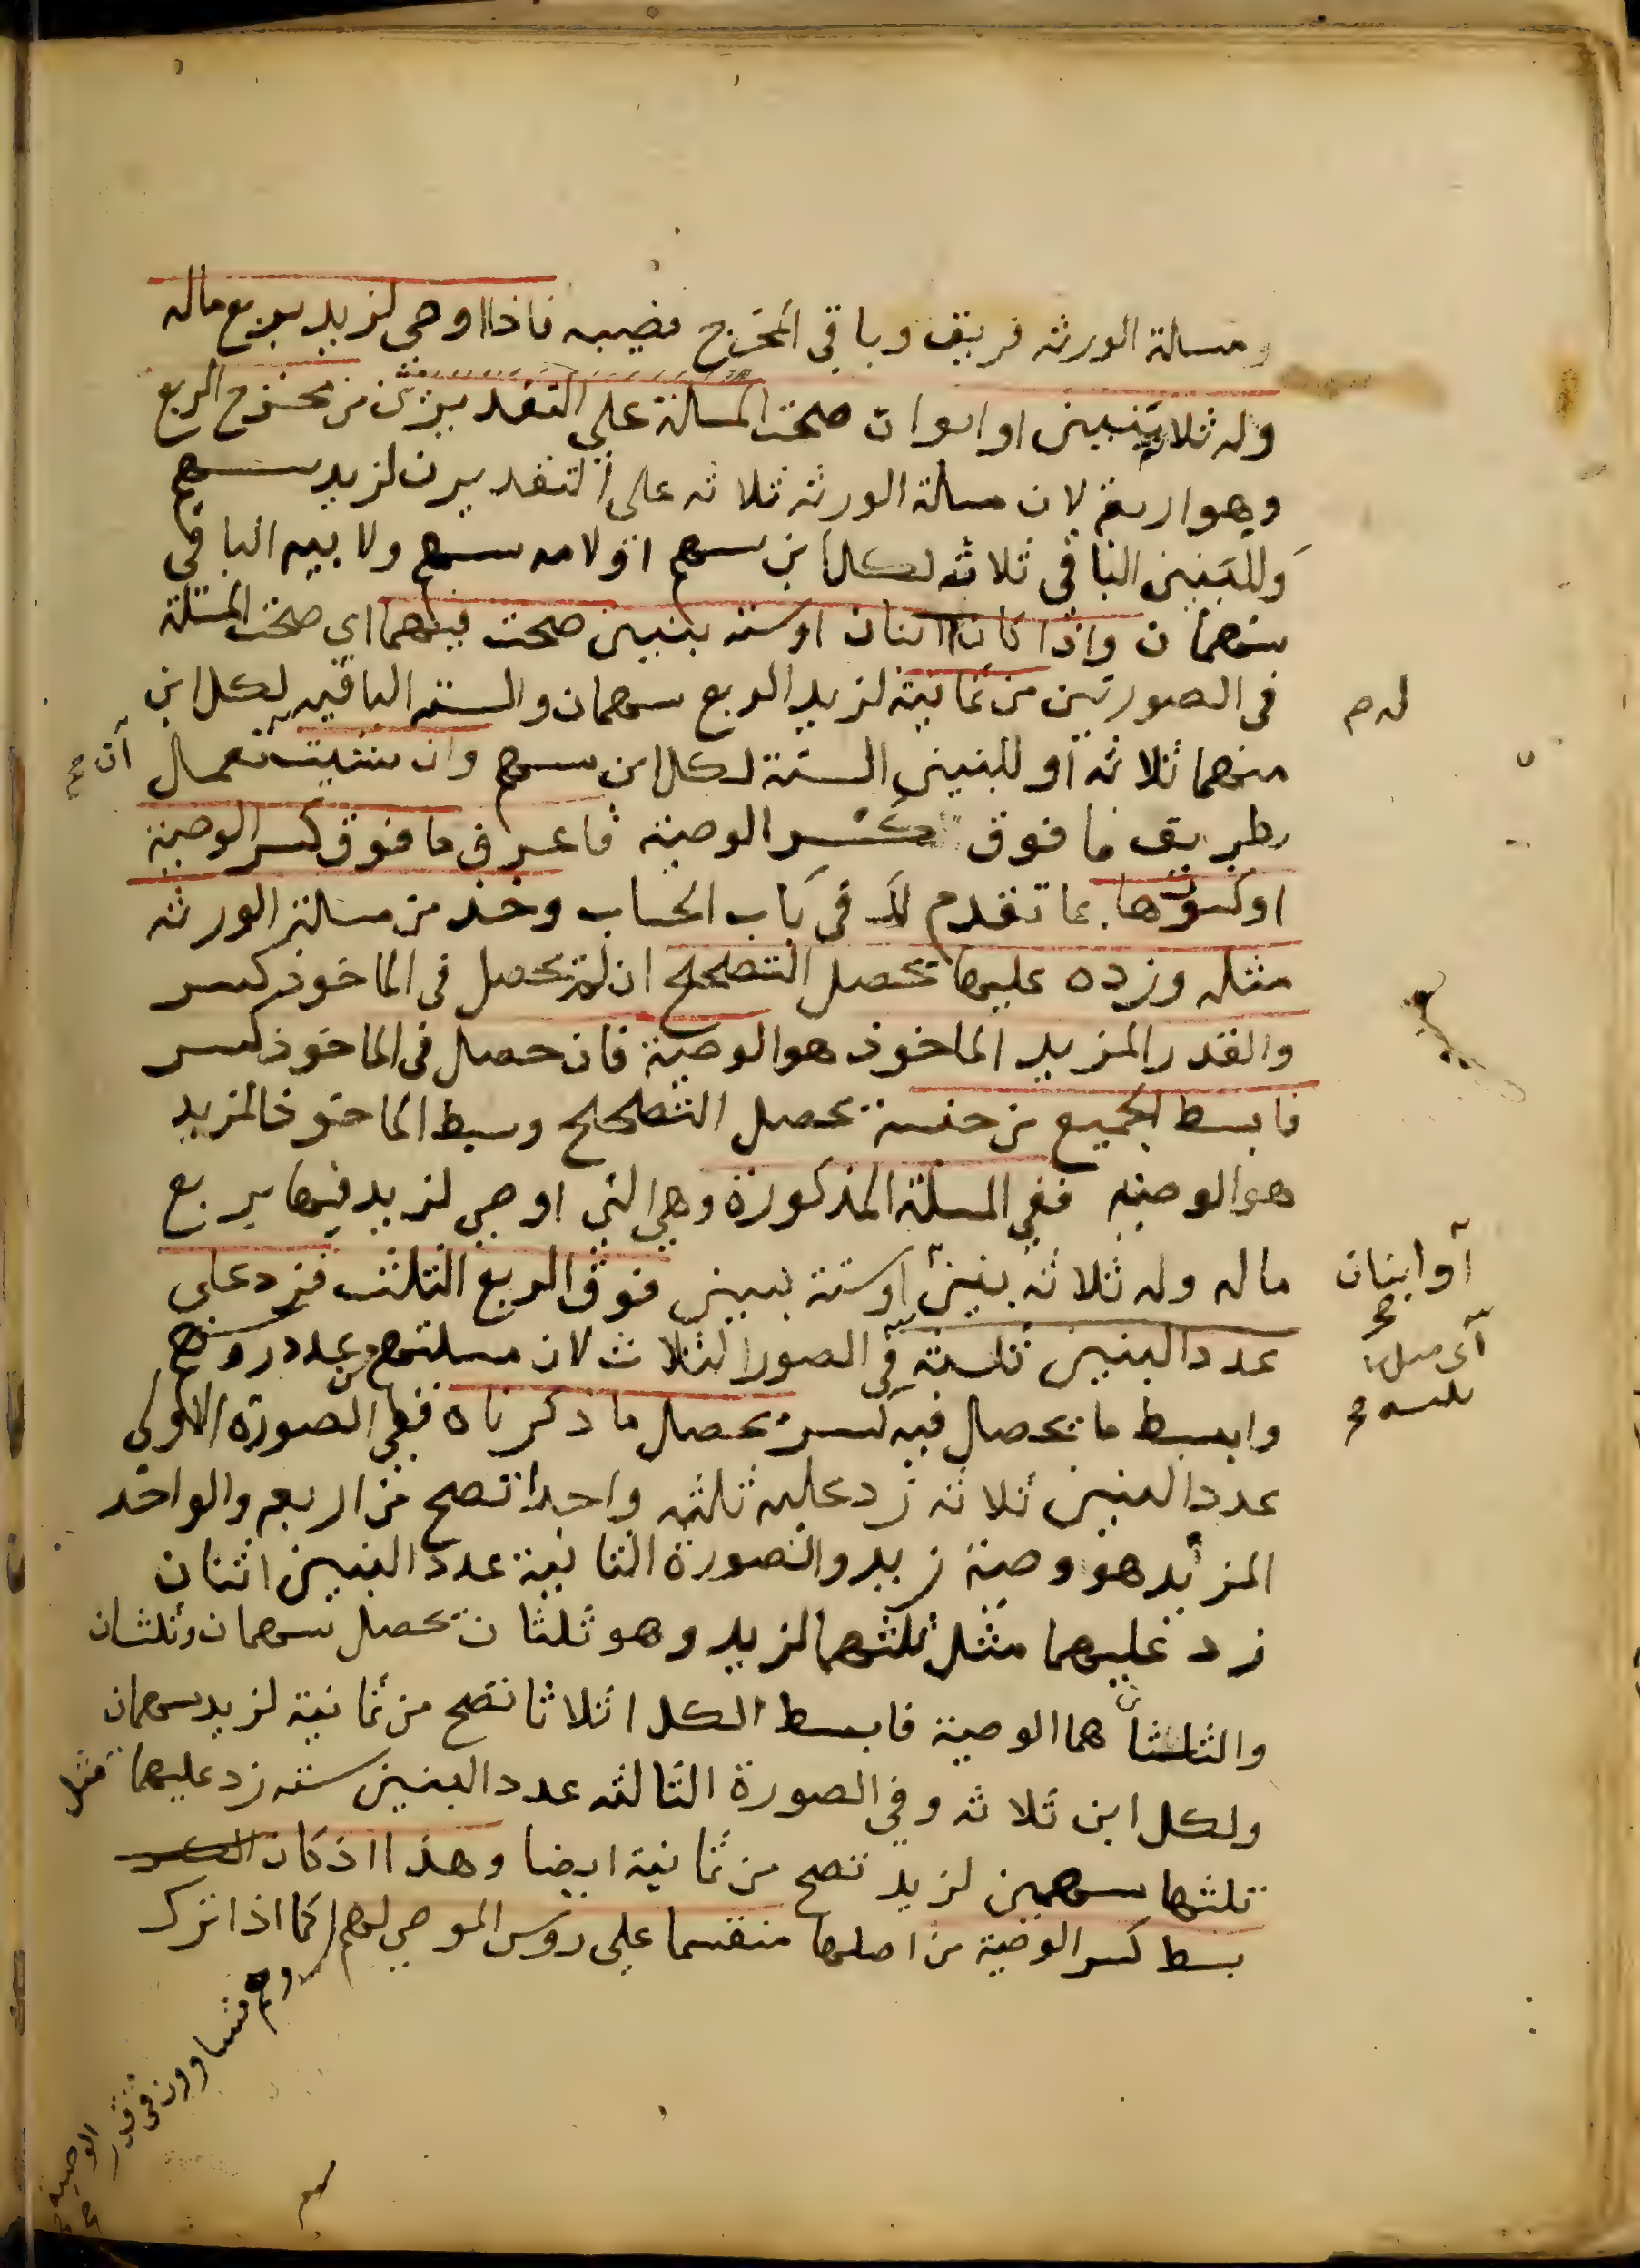 ومسالة الورثه فريق وباقي المخرج نصيبه فاذا اوصى لزيد بربع ماله
وله ثلاثة بنين او ابوان صحت المسالة على التقديرين من مخرج الربع
وهو اربعة لان مسالة الورثه ثلاثه على التقديرين لزيد سهم
وللبنين الباقي ثلاثه لكل ابن سهم او لامه سهم ولابيه الباقي
سهمان واذا كانا اثنان او سته بنين صحت فيهما اى صحت المسئلة
في الصورتين من ثمانية لزيد الربع سهمان والسته الباقيه لكل ابن
له م
منهما ثلاثه او للبنين الستة لكل ابن سهم وان شئت تعمال
ان صح
بطريق ما فوق كسر الوصية فاعرف ما فوق كسر الوصية
او كسورها بما تقدم لك في باب الحساب وخذ من مسالة الورثه
مثله وزده عليها تحصل التصحيح ان لم تحصل في الماخوذ كسر
والقدر المزيد الماخوذ هو الوصية فان حصل في الماخوذ كسر
فابسط الجميع من جنسه تحصل التصحيح وبسط الماخوذ المزيد
هو الوصيه ففي المسئلة المذكورة وهي التي اوصى لزيد فيها بربع
ماله وله ثلاثه بنين او سته بنين فوق الربع الثلث فزد على
او ابنان صح
عدد البنين ثلثه في الصور الثلاث لان مسلتهم من عدد روسهم
اى مثل ثلثه صح
وابسط ما تحصل فيه كسر تحصل ما ذكرناه ففي الصورة الاولى
عدد البنين ثلاثه زد عليه ثلثه واحدا تصح من اربعه والواحد
المزيد هو وصية زيد والصورة الثانية عدد البنين اثنان
زد عليهما مثل ثلثهما لزيد وهو ثلثان تحصل سهمان وثلثان
والثلثان هما الوصية فابسط الكل اثلاثا تصح من ثمانية لزيد سهمان
ولكل ابن ثلاثه وفي الصورة الثالثه عدد البنين سته زد عليهما مثل
ثلثها سهمين لزيد تصح من ثمانية ايضا وهذا اذ كان
بسط كسر الوصية من اصلها منقسما على روس الموصى لهم كما اذا ترك
وهم متساوون في قدر الوصية صح